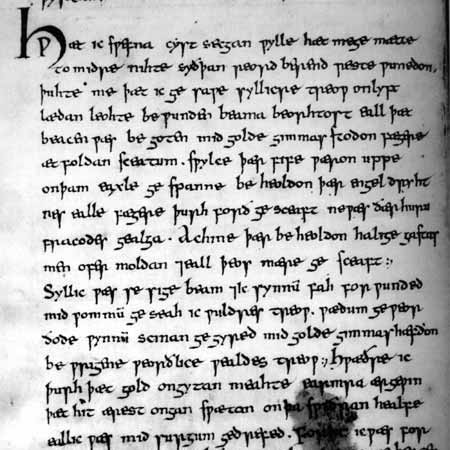 Hƿæt ic sƿefna cyst secgan ƿylle hæt mege mætte
to midre nihte syðþan reord berend reste ƿunedon.
þuhte me þæt ic ge saƿe syllicre treoƿ onlyft
lædan leohte be ƿunden beama beorhtost eall þæt
beacen ƿæs be goten mid golde gimmas stodon fægere
æt foldan sceatum. sƿylce þær fife ƿæron uppe
onþam eaxle ge spanne be heoldon þær engel dryht
nes ealle fægere þurh forð ge sceaft ne ƿæs ðær huru
fracodes gealga. Ac hine þær be heoldon halige gastas
men ofer moldan ⁊eall þeos mære ge sceaft:
Syllic ƿæs se sige beam ⁊ic synnū fah for ƿunded
mid ƿommū ge seah ic ƿuldres treoƿ. ƿædum ge ƿeor
ðode ƿynnū scinan ge gyred mid golde gimmas hæfdon
be ƿrigene ƿeorðlice ƿealdes treoƿ; hƿæðre ic
þurh þæt gold ongytan meahte earmra ærgeƿin
þæt hit ærest ongan sƿætan onþa sƿiðran healfe
eall ic ƿæs mid surgum gedrefed. forht ic ƿæs for